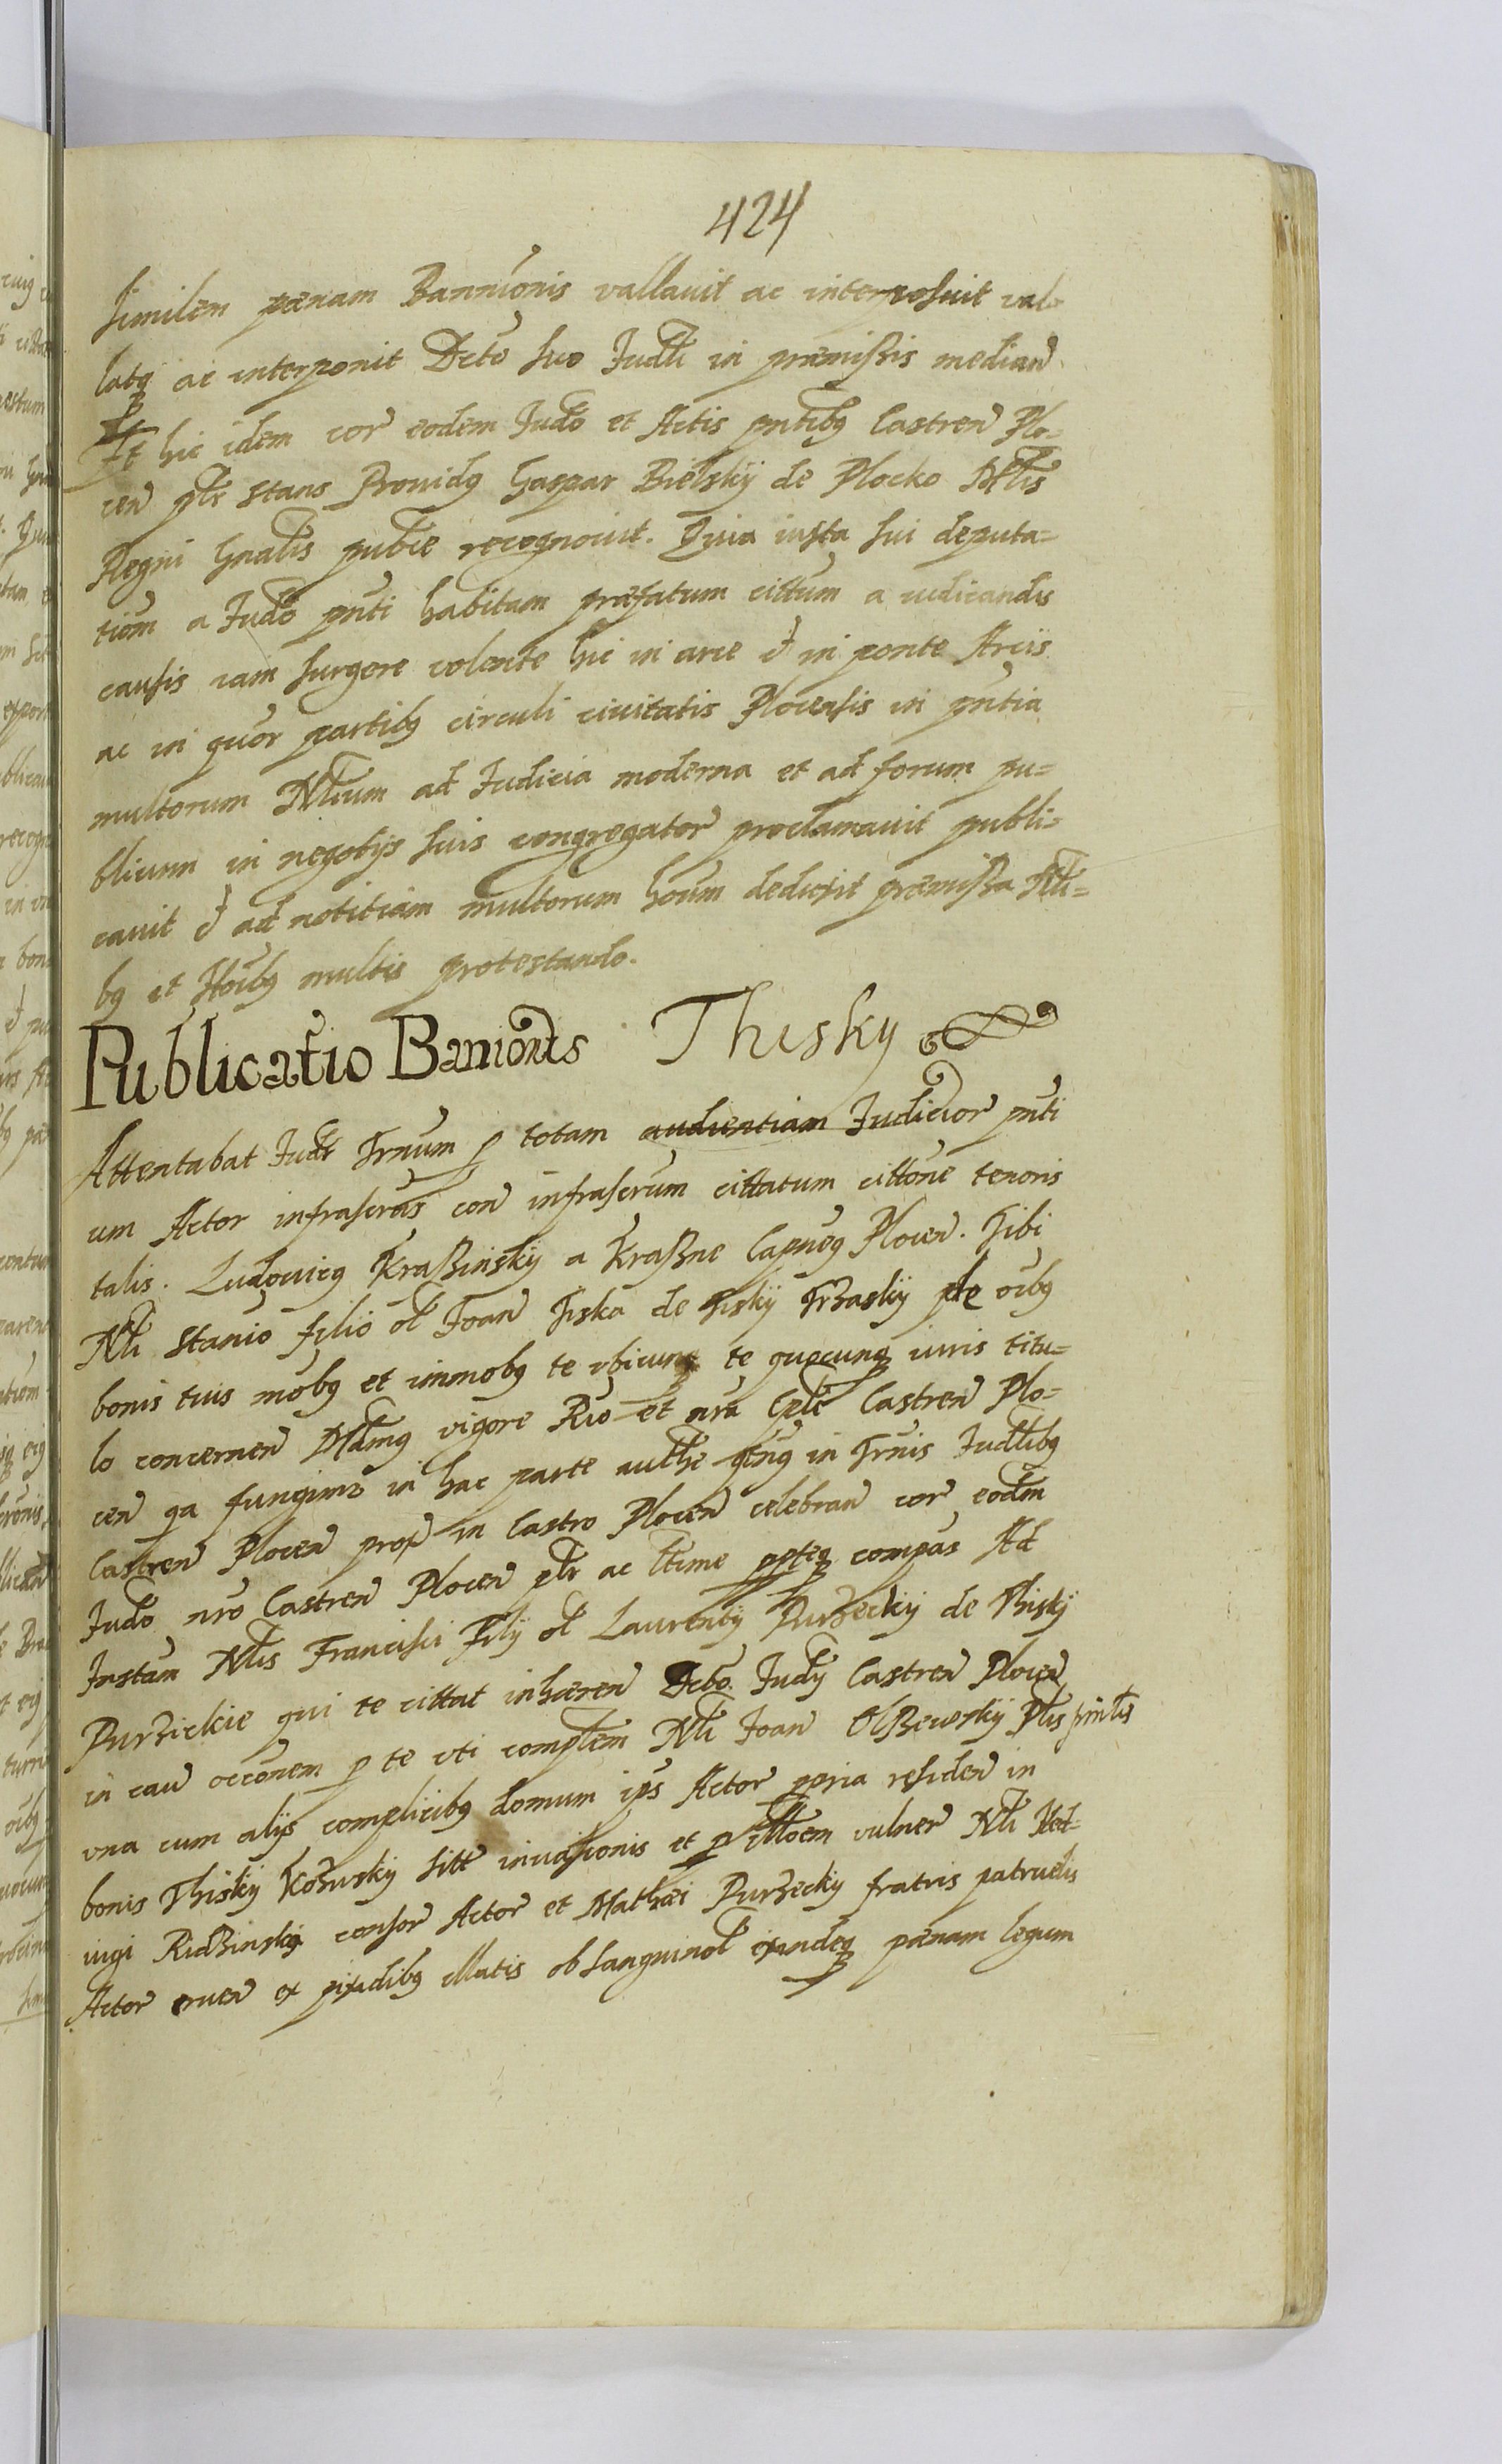 424
similem pœnam Bannionis vallauit ac interposuit val-
latq ac interponit Dcto suo Judli in præmissis median
Et hic idem cor eodem Judo et Actis pntibq Castren Plo-
cen plr stans Prouidq Gaspar Bielskÿ de Plocko Mtlis
Regni Gnalis publce recognouit. Quia iuxta sui deputa-
tiom a Judo pnti habitam præfatum cittum a iudicandis
causis iam surgere volente hic in arce et in ponte Arcis
ac in quor partibq circuli ciuitatis Plocensis in pntia
multorum Nlium ad Judicia moderna et ad forum pu-
blicum in negotÿs suis congregator proclamauit publi-
cauit et ad notitiam multorum houm deduxit præmissa Nli-
bq et Hoibq multis protestando.
Publicatio Banionis Thisky
Attentabat Judt Trnum p totam audientiam Judicior pnti
um Actor infrascrus con infrascrum cittatum cittone tenoris
talis. Ludouicq Kraßinskÿ a Kraßne Capneq Plocen. Tibi
Nli Stanio filio ol Joan Tiska de Tiskÿ Trzaskÿ de oibq
bonis tuis mobq et immobq te vbicunq te quocunq iuris titu-
lo concernen Mdamq vigore Rio et nra Cple Castren Plo-
cen qa fungimr in hac parte authe qtnq in Trnis Judlibq
Castren Plocen prox in Castro Plocen celebran cor eodem
Judo nro Castren Plocen plr ac ltime ppteq compas Ad
Instam Nlis Francisci Filÿ ol Laurentÿ Purzeckÿ de Thiskÿ
Purzickie qui te cittat inhæren Dcto Judÿ Castren Plocen
in cau occonem p te vti complem Nli Joan Olßewskÿ Plis prinlis
vna cum alÿs complicibq domum ips Actor ppria residen in
bonis Thiskÿ Kozuskÿ sitt inuasionis et p illoem vulner Nli Hed-
uigi Rußinskÿ consor Actor et Mathæi Purzeckÿ fratris patruelis
Actor eruen ex pixidibq illatis ob sanguinol exindeq pœnam legum